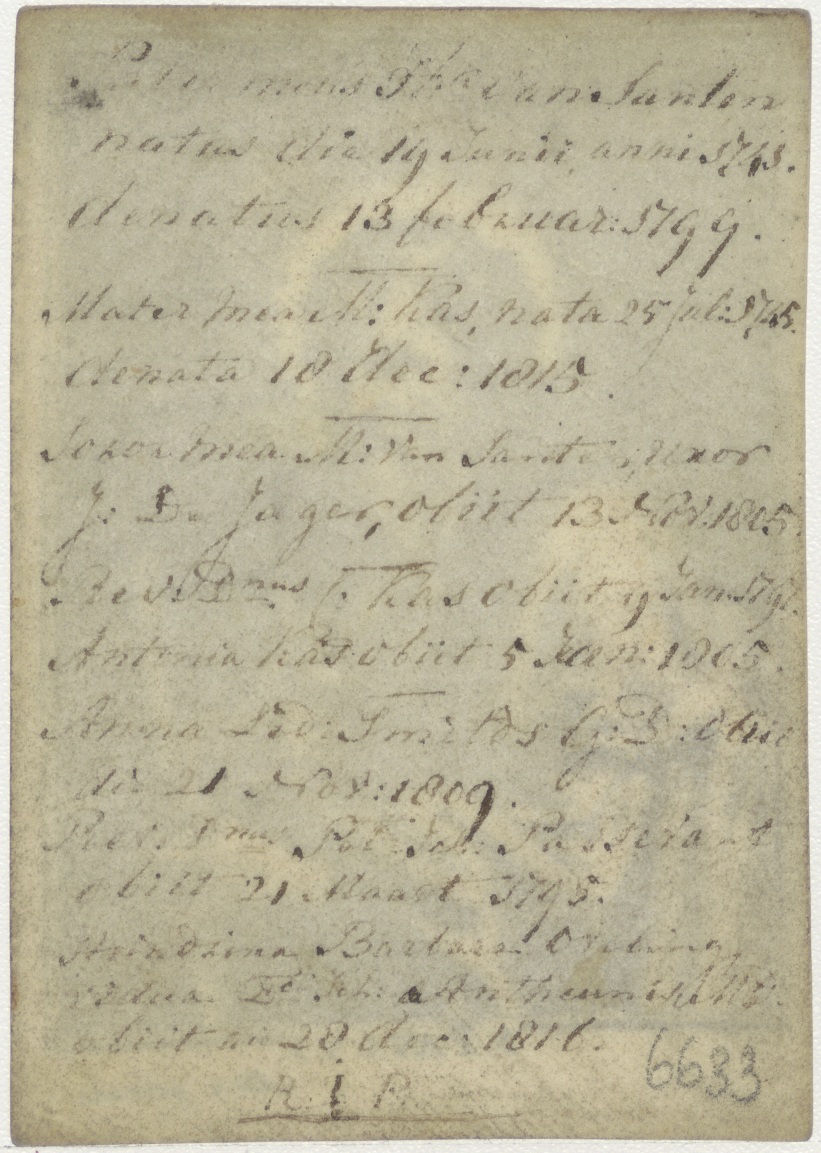 Pater meus Th: van Santen
natus die 19 Junii, anni 1743.
denatus 13 februar: 1799.
Mater mea M: Kas, nata 25 Jul: 1745.
denata 18 dec: 1815.
Soror mea M: van Santen, uxor
J: De Jager, obiit 13 Nov: 1805
Rev: Dnus C: Kas obiit 9 Jan: 1797.
Antonia Kas obiit 5 Jan: 1805.
Anna Smets G: D: obiit
die 21 Nov: 1809.
Rev: Dnus Joh: Passevant
obiit 21 Maart 1795.
Barbara
vidua a Antheunis
obiit 28 dec: 1816.
R. i P.
6633